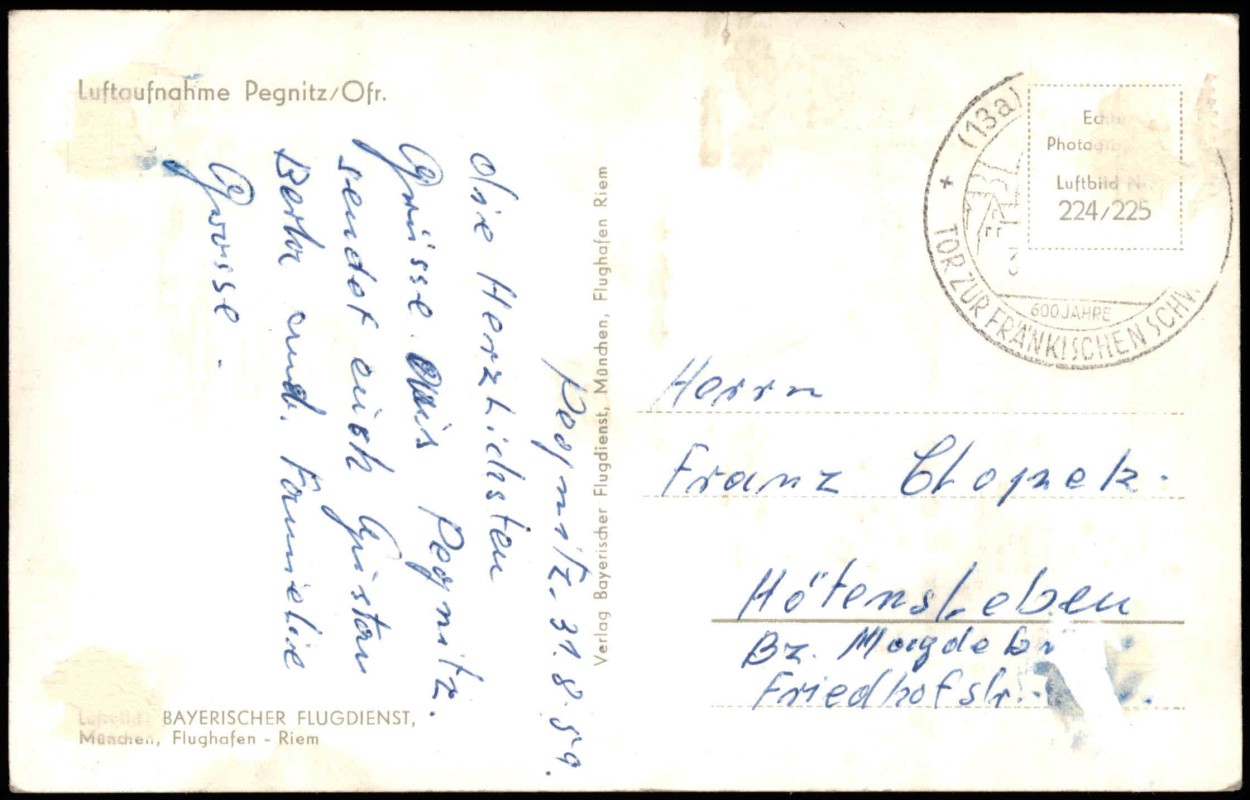 Luftaufnahme Pegnitz/Ofr.
Pegnitz. 31.8.59.
die Herzlichsten
Grüsse. Aus Pegnitz.
sendet euch Gustav
Berta und. Familie
Grosse.
Luftbild: BAYERISCHER FLUGDIENST,
München, Flughafen - Riem
Verlag Bayerischer Flugdienst, München, Flughafen Riem
(13a)
600 JAHRE
TOR ZUR FRÄNKISCHEN SCHW.
Photogra
Luftbild N
224/225
Herrn
Franz Chopek.
Hötensleben
Bz. Magdebu
Friedhofstr.